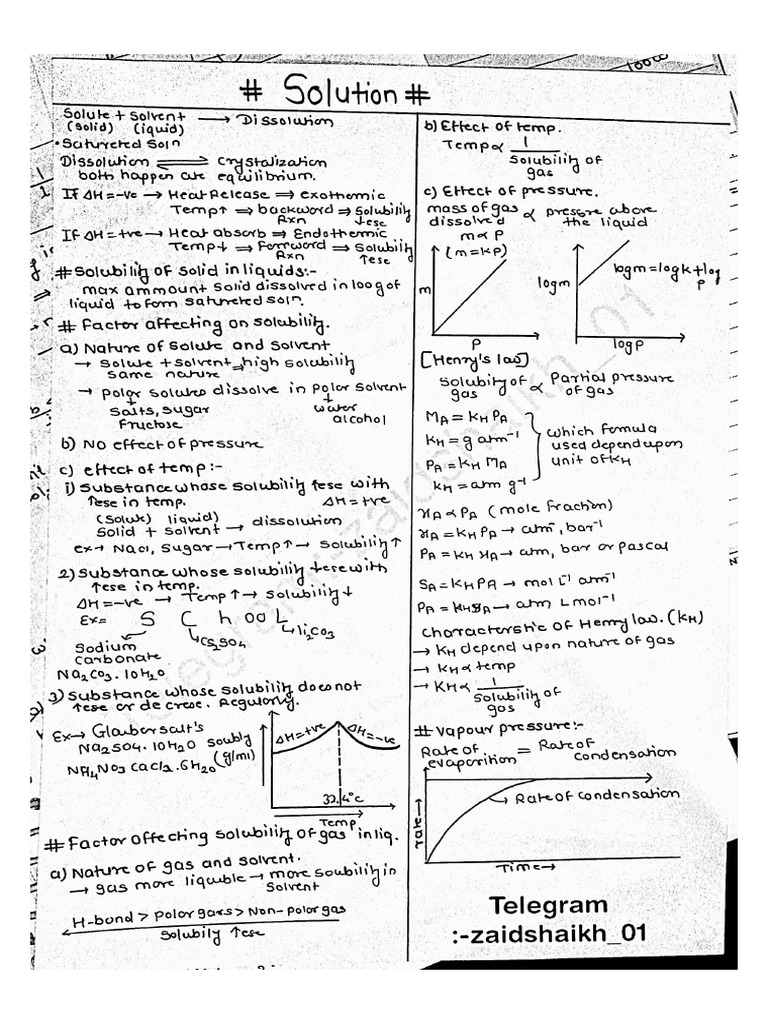 # Solution #
Solute + Solvent → Dissolution
(solid) (liquid)
• Satureted Soln
Dissolution ⇌ Crystalization
both happen are equilibrium.
If ΔH = -ve → Heat Release ⇒ exothemic
Temp↑ ⇒ backword Rxn ⇒ Solubility ↑ese
If ΔH = +ve → Heat absorb ⇒ Endothemic
Temp↓ ⇒ Forword Rxn ⇒ Solubility ↑ese
# Solubility of solid in liquids:-
max ammount Solid dissolved in 100g of
liquid to form satureted soln.
# Factor affecting on solubility.
a) Nature of Solute and Solvent
→ Solute + Solvent ⇒ high solubility
same nature
→ polar solutes dissolve in Polar Solvent
↓ ↓
Salts, sugar water
fructose alcohol
b) No effect of pressure
c) effect of temp:-
1) Substance whose solubility ↑ese with
↑ese in temp. ΔH = +ve
(Solut) liquid)
Solid + Solvent → dissolution
ex→ Nacl, Sugar → Temp↑ → Solubility↑
2) Substance whose solubility ↓ese with
↑ese in temp.
ΔH = -ve → Temp↑ → solubility↓
Ex= S C h oo L
Sodium Cs2SO4 li2CO3
carbonate
Na2CO3.10H2O
3) Substance whose solubility does not
↑ese or decrese. Regulorly.
Ex→ Glauber salt's
Na2SO4.10H2O
NH4NO3 CaCl2.6H2O
Soubly
(g/ml)
ΔH=+ve ΔH=-ve
32.4°c
Temp
# Factor affecting solubility of gas in liq.
a) Nature of gas and solvent.
→ gas more liquible → more soubility in
Solvent
H-bond > Polar gars > Non-polar gas
Solubily ↑ese
b) Effect of temp.
Temp ∝ 1 / Solubility of gas
c) Effect of pressure.
mass of gas dissolved ∝ pressre above the liquid
m ∝ P
(m = KP)
m
P
logm
logm = logk + log P
log P
[Henry's law]
Solubility of gas ∝ Partial pressure of gas
MA = KH PA
KH = g atm-1
PA = KH MA
KH = atm g-1
which fomula
used depend upon
unit of KH
xA ∝ PA (mole fraction)
xA = KH PA → atm-, bar-1
PA = KH xA → atm, bar or pascal
SA = KH PA → mol L-1 atm-1
PA = KH SA → atm L mol-1
Characterstic of Henry law. (KH)
→ KH depend upon nature of gas
→ KH ∝ temp
→ KH ∝ 1 / Solubility of gas
# Vapour pressure:-
Rate of evaporition = Rate of condensation
rate→
Rate of condensation
Time→
Telegram
:-zaidshaikh_01
Telegram:-zaidshaikh_01